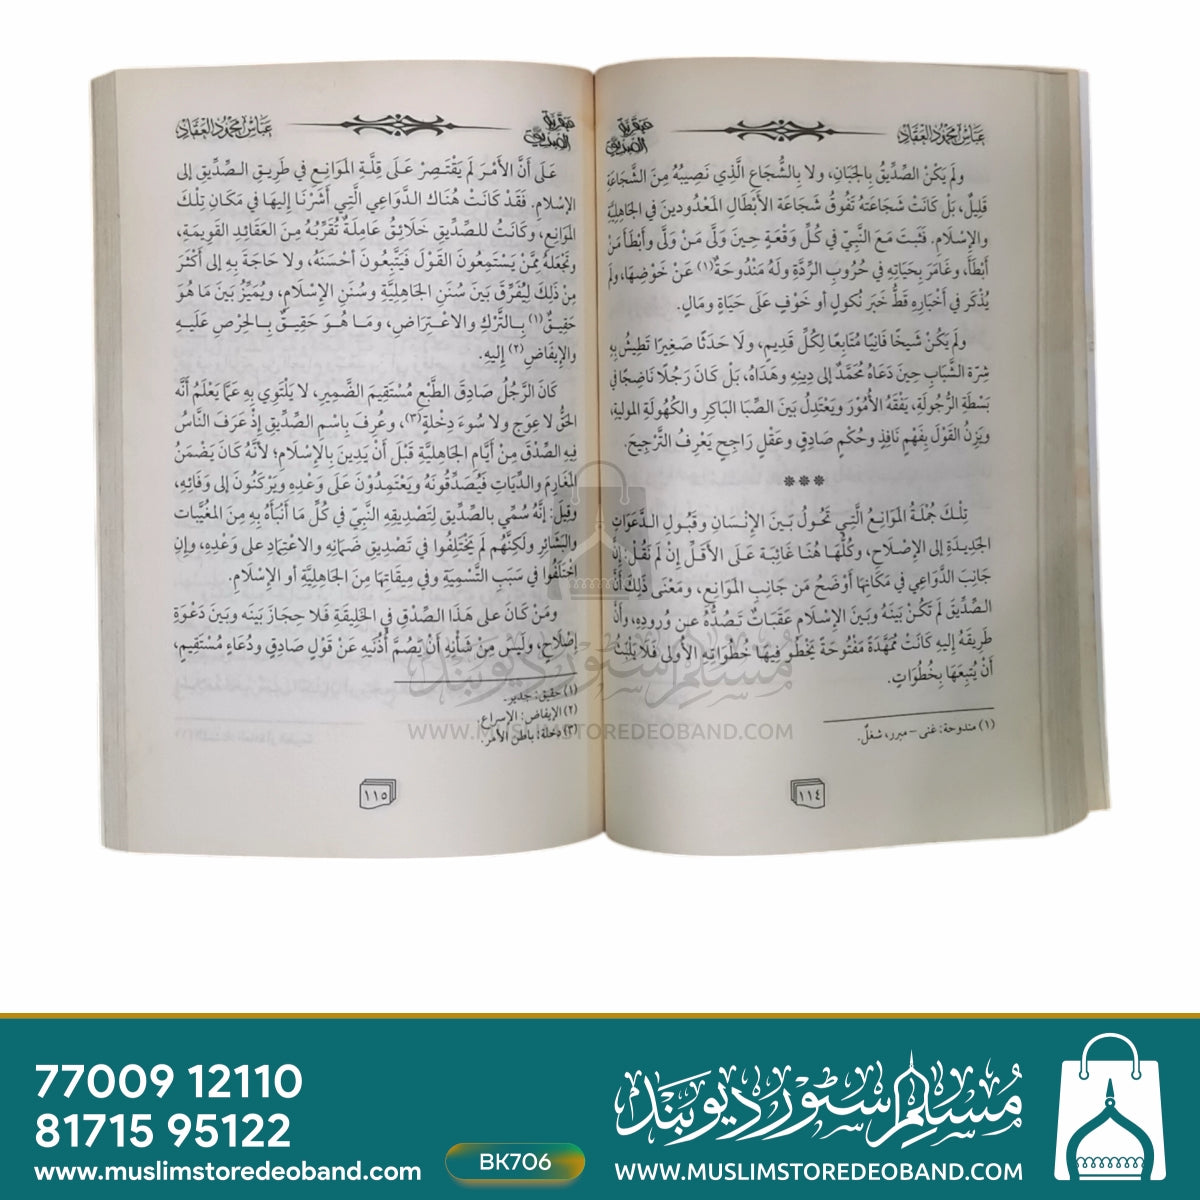 عبقرية الصديق
عباس محمود العقاد
ولَم يَكُنْ الصِّدِّيقُ بِالجَبَانِ، ولا بِالشُّجَاعِ الَّذي نَصِيبُهُ مِنَ الشَّجَاعَةِ
قَلِيلٌ، بَلْ كَانَتْ شَجَاعَتهُ تَفُوقُ شَجَاعَةَ الأَبْطَالِ المَعْدُودينَ في الجَاهِليَّةِ
والإسْلَامِ. فَثَبتَ مَعَ النَّبِيِّ في كُلِّ وَقْعَةٍ حِينَ وَلَّى مَنْ وَلَّى وأَبْطَأَ مَنْ
أَبْطَأَ، وغَامَرَ بِحَيَاتِهِ في حُرُوبِ الرِّدَّةِ ولَهُ مَنْدُوحَةٌ(١) عَنْ خَوْضِهَا، ولَم
يُذْكَر في أَخْبَارِهِ قَطُّ خَبَر نُكولٍ أو خَوْفٍ عَلَى حَيَاةٍ ومَالٍ.
ولَم يَكُنْ شَيخًا فَانِيًا مُتَابِعًا لِكُلِّ قَدِيمٍ، ولَا حَدَثًا صَغِيرًا تَطِيشُ بِهِ
شِرَة الشَّبَابِ حِينَ دَعَاهُ مُحَمَّدٌ إلى دِينِهِ وهَدَاهُ، بَلْ كَانَ رَجُلًا نَاضِجًا في
بَسْطَةِ الرُّجُولَةِ، يَفْقَهُ الأُمُوْرَ ويَعْتَدِلُ بَينَ الصِّبَا البَاكِرِ والكُهُولَةِ المولِيةِ،
ويَزِنُ القَوْلَ بِفَهْمٍ نَافِذٍ وحُكْمٍ صَادِقٍ وعَقْلٍ رَاجِحٍ يَعْرِفُ التَّرْجِيحَ.
***
تِلْكَ جُمْلَةُ المَوَانِعُ الَّتِي تَحُولُ بَينَ الإنْسَانِ وقَبُولِ الدَّعَوَاتِ
الجَدِيدَةِ إلى الإصْلَاحِ، وكُلُّهَا هُنَا غَائِبَة عَلَى الأقَلِّ إنْ لَم نَقُلْ: إنَّ
جَانِبَ الدَّوَاعِي في مَكَانِهَا أَوْضَحُ مَن جَانِبِ المَوَانِعِ، ومَعْنَى ذَلِكَ أَنَّ
الصِّدِّيقَ لَم تَكُنْ بَينَهُ وبَينَ الإسْلَامِ عَقَبَاتٌ تَصُدُّهُ عَن وُرودِهِ، وأَنَّ
طَرِيقَهُ إليهِ كَانَتْ مُمَهَّدَةً مَفْتُوحَةً يَخْطُو فِيهَا خُطُوَاتِهِ الأولَى فَلَا يَلْبَثُ
أَنْ يُتبِعَهَا بِخُطُوَاتٍ.
(١) مندوحة: غنى – مبرر، شغلٌ.
١١٤
عبقرية الصديق
عباس محمود العقاد
عَلَى أَنَّ الأَمْرَ لَم يَقْتَصِرْ عَلَى قِلَّةِ المَوَانِعِ في طَرِيقِ الصِّدِّيقِ إلى
الإسْلَامِ. فَقَدْ كَانَتْ هُنَاكَ الدَّوَاعِي الَّتِي أَشَرْنَا إليهَا في مَكَانِ تِلْكَ
المَوَانِعِ، وكَانَتْ للصِّدِّيقِ خَلَائِقُ عَامِلَةٌ تُقَرِّبُهُ مِنَ العَقَائِدِ القَوِيمَةِ،
وتَجْعَلهُ مِمَّنْ يَسْتَمِعُونَ القَوْلَ فَيَتَّبِعُونَ أَحْسَنَهُ، ولا حَاجَةَ بِهِ إلى أَكْثَرَ
مِنْ ذَلِكَ لِيُفَرِّقَ بَينَ سُنَنِ الجَاهِليَّةِ وسُنَنِ الإسْلَامِ، ويُمَيِّزُ بَينَ مَا هُوَ
حَقِيقٌ(١) بِالتَّرْكِ والاعْتِرَاضِ، ومَا هُوَ حَقِيقٌ بِالحِرْصِ عَلَيهِ
والإيفَاضِ(٢) إليهِ.
كَانَ الرَّجُلُ صَادِقَ الطَّبْعِ مُسْتَقِيمَ الضَّمِيرِ، لا يَلْتَوِي بِهِ عَمَّا يَعْلَمُ أَنَّهُ
الحَقُّ لا عِوَج ولا سُوءَ دِخْلةٍ(٣)، وعُرِفَ بِاسْمِ الصِّدِّيقِ إذْ عَرَفَ النَّاسُ
فِيهِ الصِّدْقَ مِنْ أَيَّامِ الجَاهليَّةِ قَبْلَ أَنْ يَدِينَ بِالإسْلَامِ؛ لأَنَّهُ كَانَ يَضْمَنُ
المَغَارِمَ والدِّيَاتِ فَيُصَدِّقُونَهُ ويَعْتَمِدُوْنَ عَلَى وَعْدِهِ ويَرْكَنُونَ إلى وَفَائِهِ،
وقِيلَ: إنَّهُ سُمِّيَ بالصِّدِّيقِ لِتَصْدِيقِهِ النَّبِيَّ في كُلِّ مَا أَنْبَأَهُ بِهِ مِنَ المُغَيَّبَات
والبَشَائِرِ ولَكِنَّهُم لَم يَخْتَلِفُوا في تَصْدِيقِ ضَمَانِهِ والاعْتِمَادِ على وَعْدِهِ، وإنِ
اخْتَلَفُوا في سَبَبِ التَّسْمِيَةِ وفي مِيقَاتِهَا مِنَ الجَاهِليَّةِ أو الإسْلَامِ.
ومَنْ كَانَ على هَذَا الصِّدْقِ في الخَلِيقَةِ فَلا حِجَازَ بَينَه وبَينَ دَعْوَةِ
إصْلَاحٍ، ولَيْسَ مِنْ شَأْنِهِ أَنْ يَصُمَّ أُذُنَيهِ عَنْ قَوْلٍ صَادِقٍ ودُعَاءٍ مُسْتَقِيمٍ،
(١) حقيق: جدير.
(٢) الإيفاض: الإسراع.
(٣) دخلة: باطن الأمر.
١١٥
مسلم سٹور دیوبند
WWW.MUSLIMSTOREDEOBAND.COM
77009 12110
81715 95122
www.muslimstoredeoband.com
BK706
مسلم سٹور دیوبند
WWW.MUSLIMSTOREDEOBAND.COM